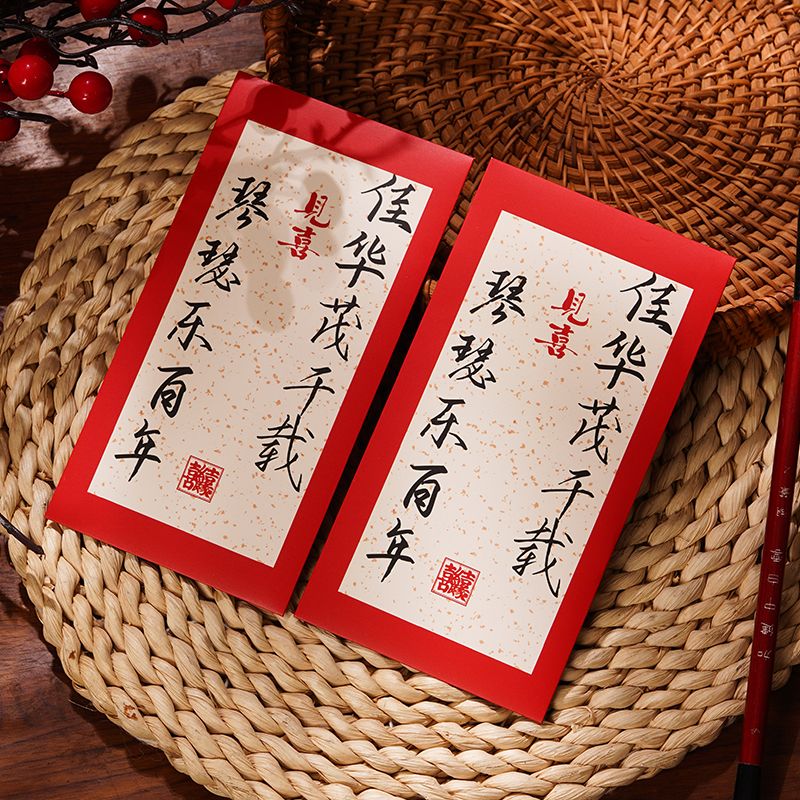 佳华茂千载
见喜
琴瑟乐百年
佳华茂千载
见喜
琴瑟乐百年